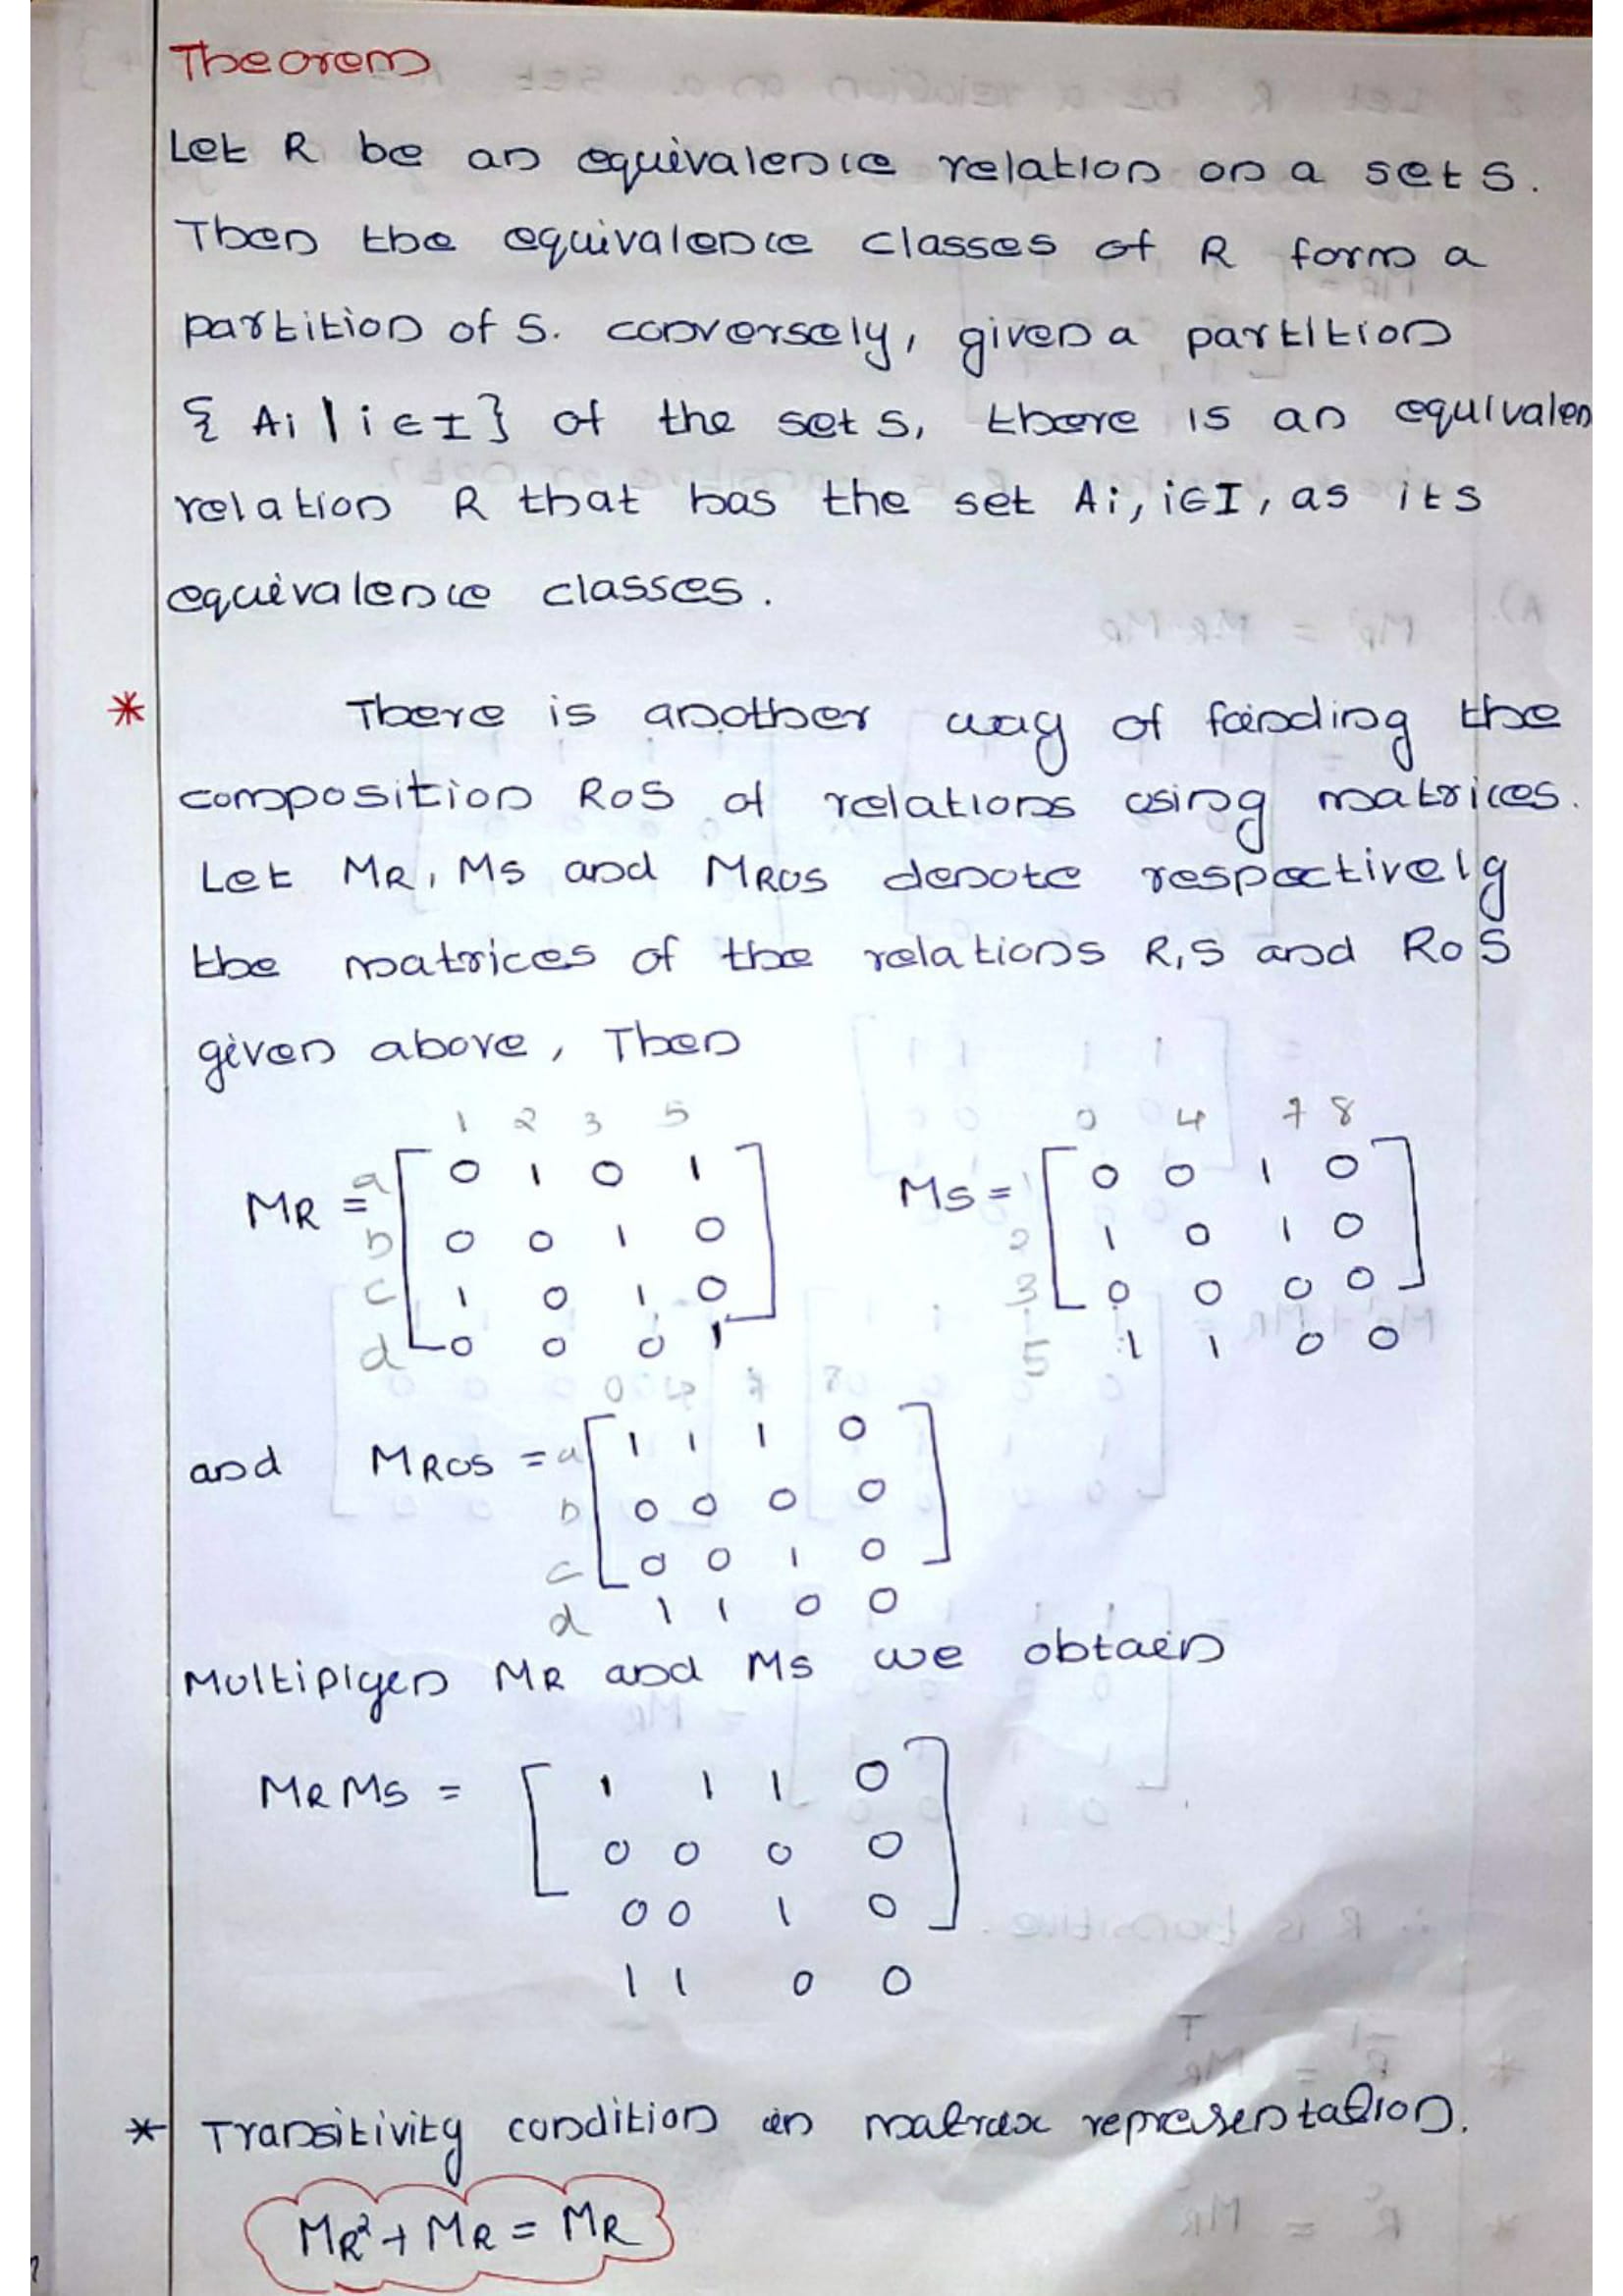 Theorem
Let R be an equivalence relation on a set S.
Then the equivalence classes of R form a
partition of S. conversely, given a partition
{ Ai | i ∈ I } of the set S, there is an equivalen
relation R that has the set Ai, i∈I, as its
equivalence classes.
* There is another way of finding the
composition RoS of relations using matrices.
Let MR, MS and MROS denote respectively
the matrices of the relations R,S and RoS
given above, Then
1 2 3 5 0 4 7 8
MR = a [ 0 1 0 1 ] MS = 1 [ 0 0 1 0 ]
b 0 0 1 0 2 1 0 1 0
c 1 0 1 0 3 0 0 0 0
d 0 0 0 1 5 1 1 0 0
0 4 7 8
and MROS = a [ 1 1 1 0 ]
b 0 0 0 0
c 0 0 1 0
d 1 1 0 0
Multiplyen MR and MS we obtain
MR MS = [ 1 1 1 0 ]
0 0 0 0
0 0 1 0
1 1 0 0
* Transitivity condition in matrix representation.
MR² + MR = MR